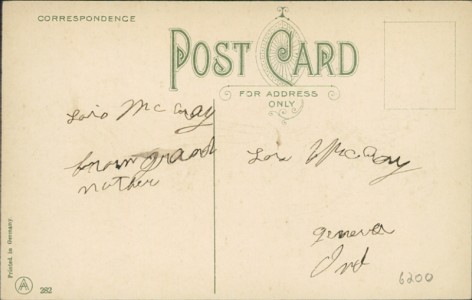 CORRESPONDENCE
POST CARD
FOR ADDRESS
ONLY
Lois McCray
from grand
mother
Lois McCray
Geneva
Ind
6200
Printed in Germany
A
282